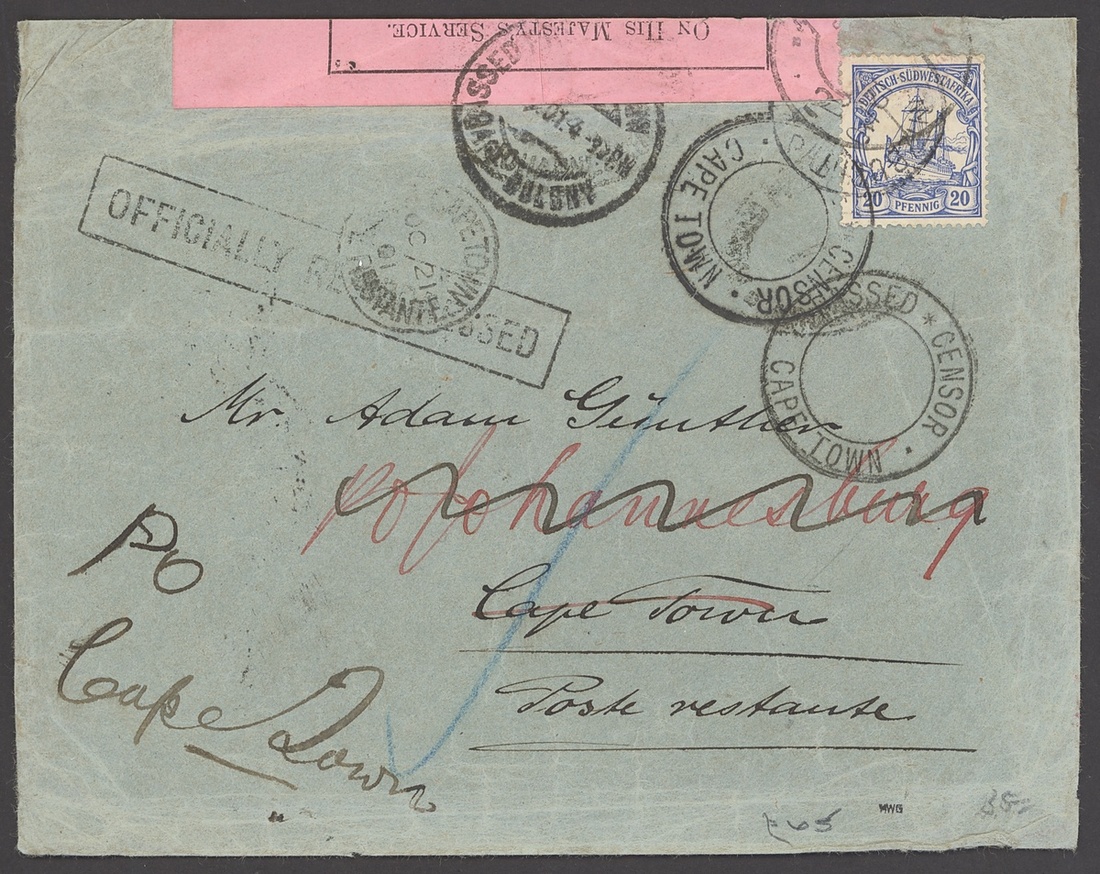 On His Majesty's Service.
DEUTSCH-SÜDWESTAFRIKA
20 PFENNIG 20
PASSED
CAPE TOWN
CENSOR
PASSED * CENSOR
CAPE TOWN
OFFICIALLY RE SSED
CAPETOWN.
OC 21
01
RESTANTE
Mr. Adam Günther
PO Johannesburg
PO
Cape Town
Poste restante
Cape Town
HWG